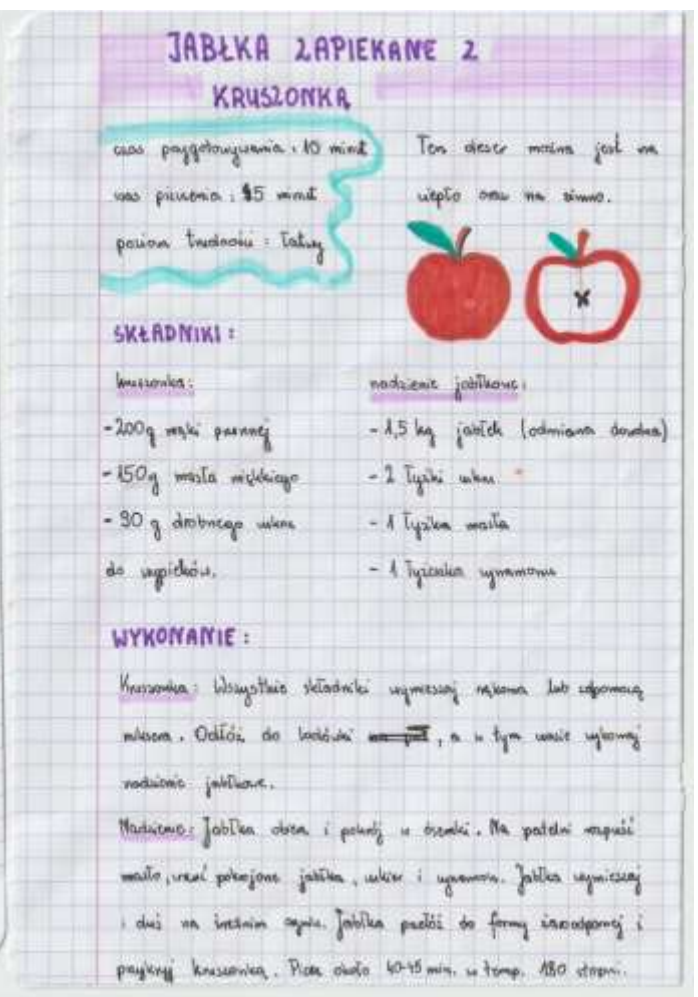 JABŁKA ZAPIEKANE Z
KRUSZONKĄ
czas przygotowywania: 10 minut
czas pieczenia: 15 minut
poziom trudności: łatwy
Ten deser można jeść na
ciepło oraz na zimno.
SKŁADNIKI:
kruszonka:
-200g mąki pszennej
-150g masła miękkiego
- 90 g drobnego cukru
do wypieków.
nadzienie jabłkowe:
- 1,5 kg jabłek (odmiana dowolna)
- 2 łyżki cukru
- 1 łyżka masła
- 1 łyżeczka cynamonu
WYKONANIE:
Kruszonka: Wszystkie składniki wymieszaj rękoma lub za pomocą
miksera. Odłóż do lodówki, a w tym czasie wykonaj
nadzienie jabłkowe.
Nadzienie: Jabłka obierz i pokrój w ósemki. Na patelni rozpuść
masło, wrzuć pokrojone jabłka, cukier i cynamon. Jabłka wymieszaj
i duś na średnim ogniu. Jabłka przełóż do formy żaroodpornej i
przykryj kruszonką. Piecz około 40-45 min. w temp. 180 stopni.